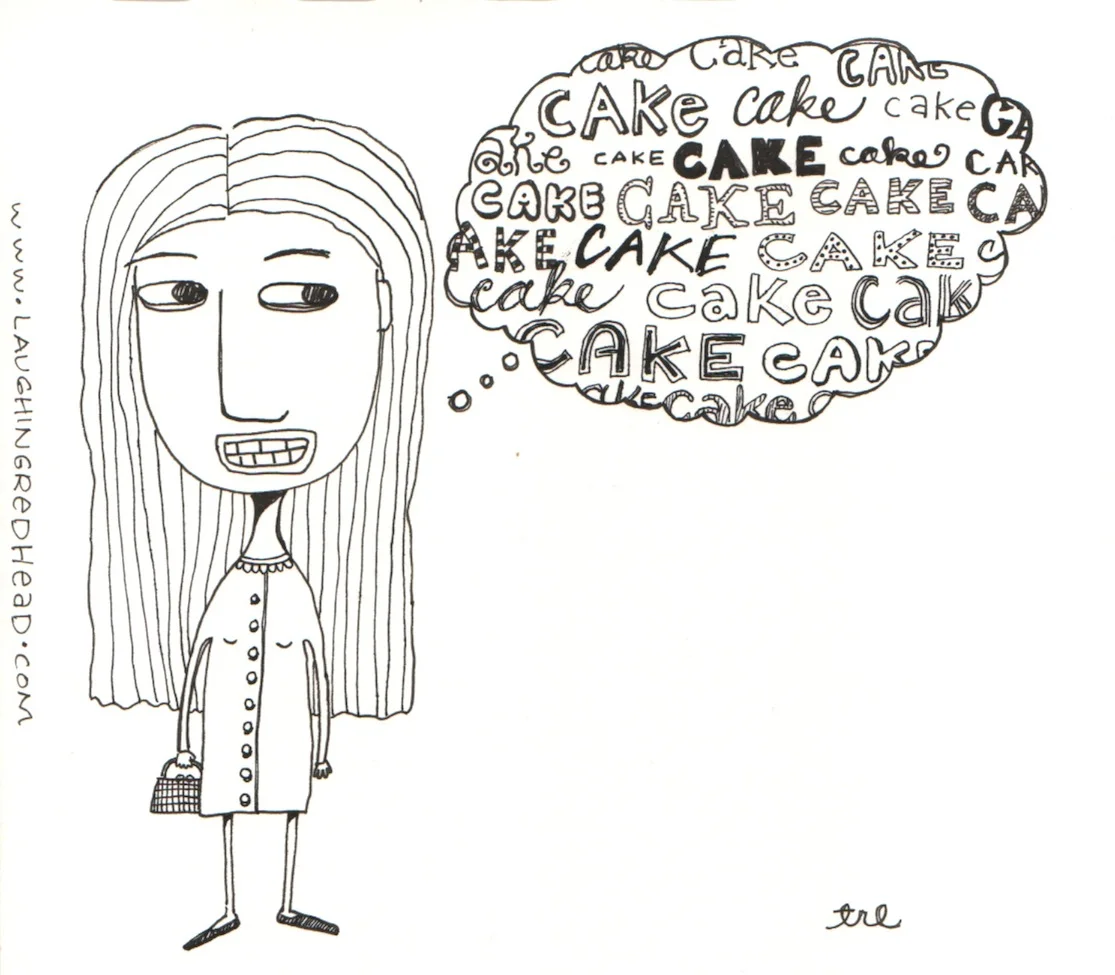 www.LAUGHINGREDHEAD.COM
cake cake CAKE
CAKe cake cake CA
ake CAKE CAKE cake CAK
CAKE CAKE CAKE CA
AKE CAKE CAKE C
cake cake Cak
CAKE CAKE
ake cake c
tre